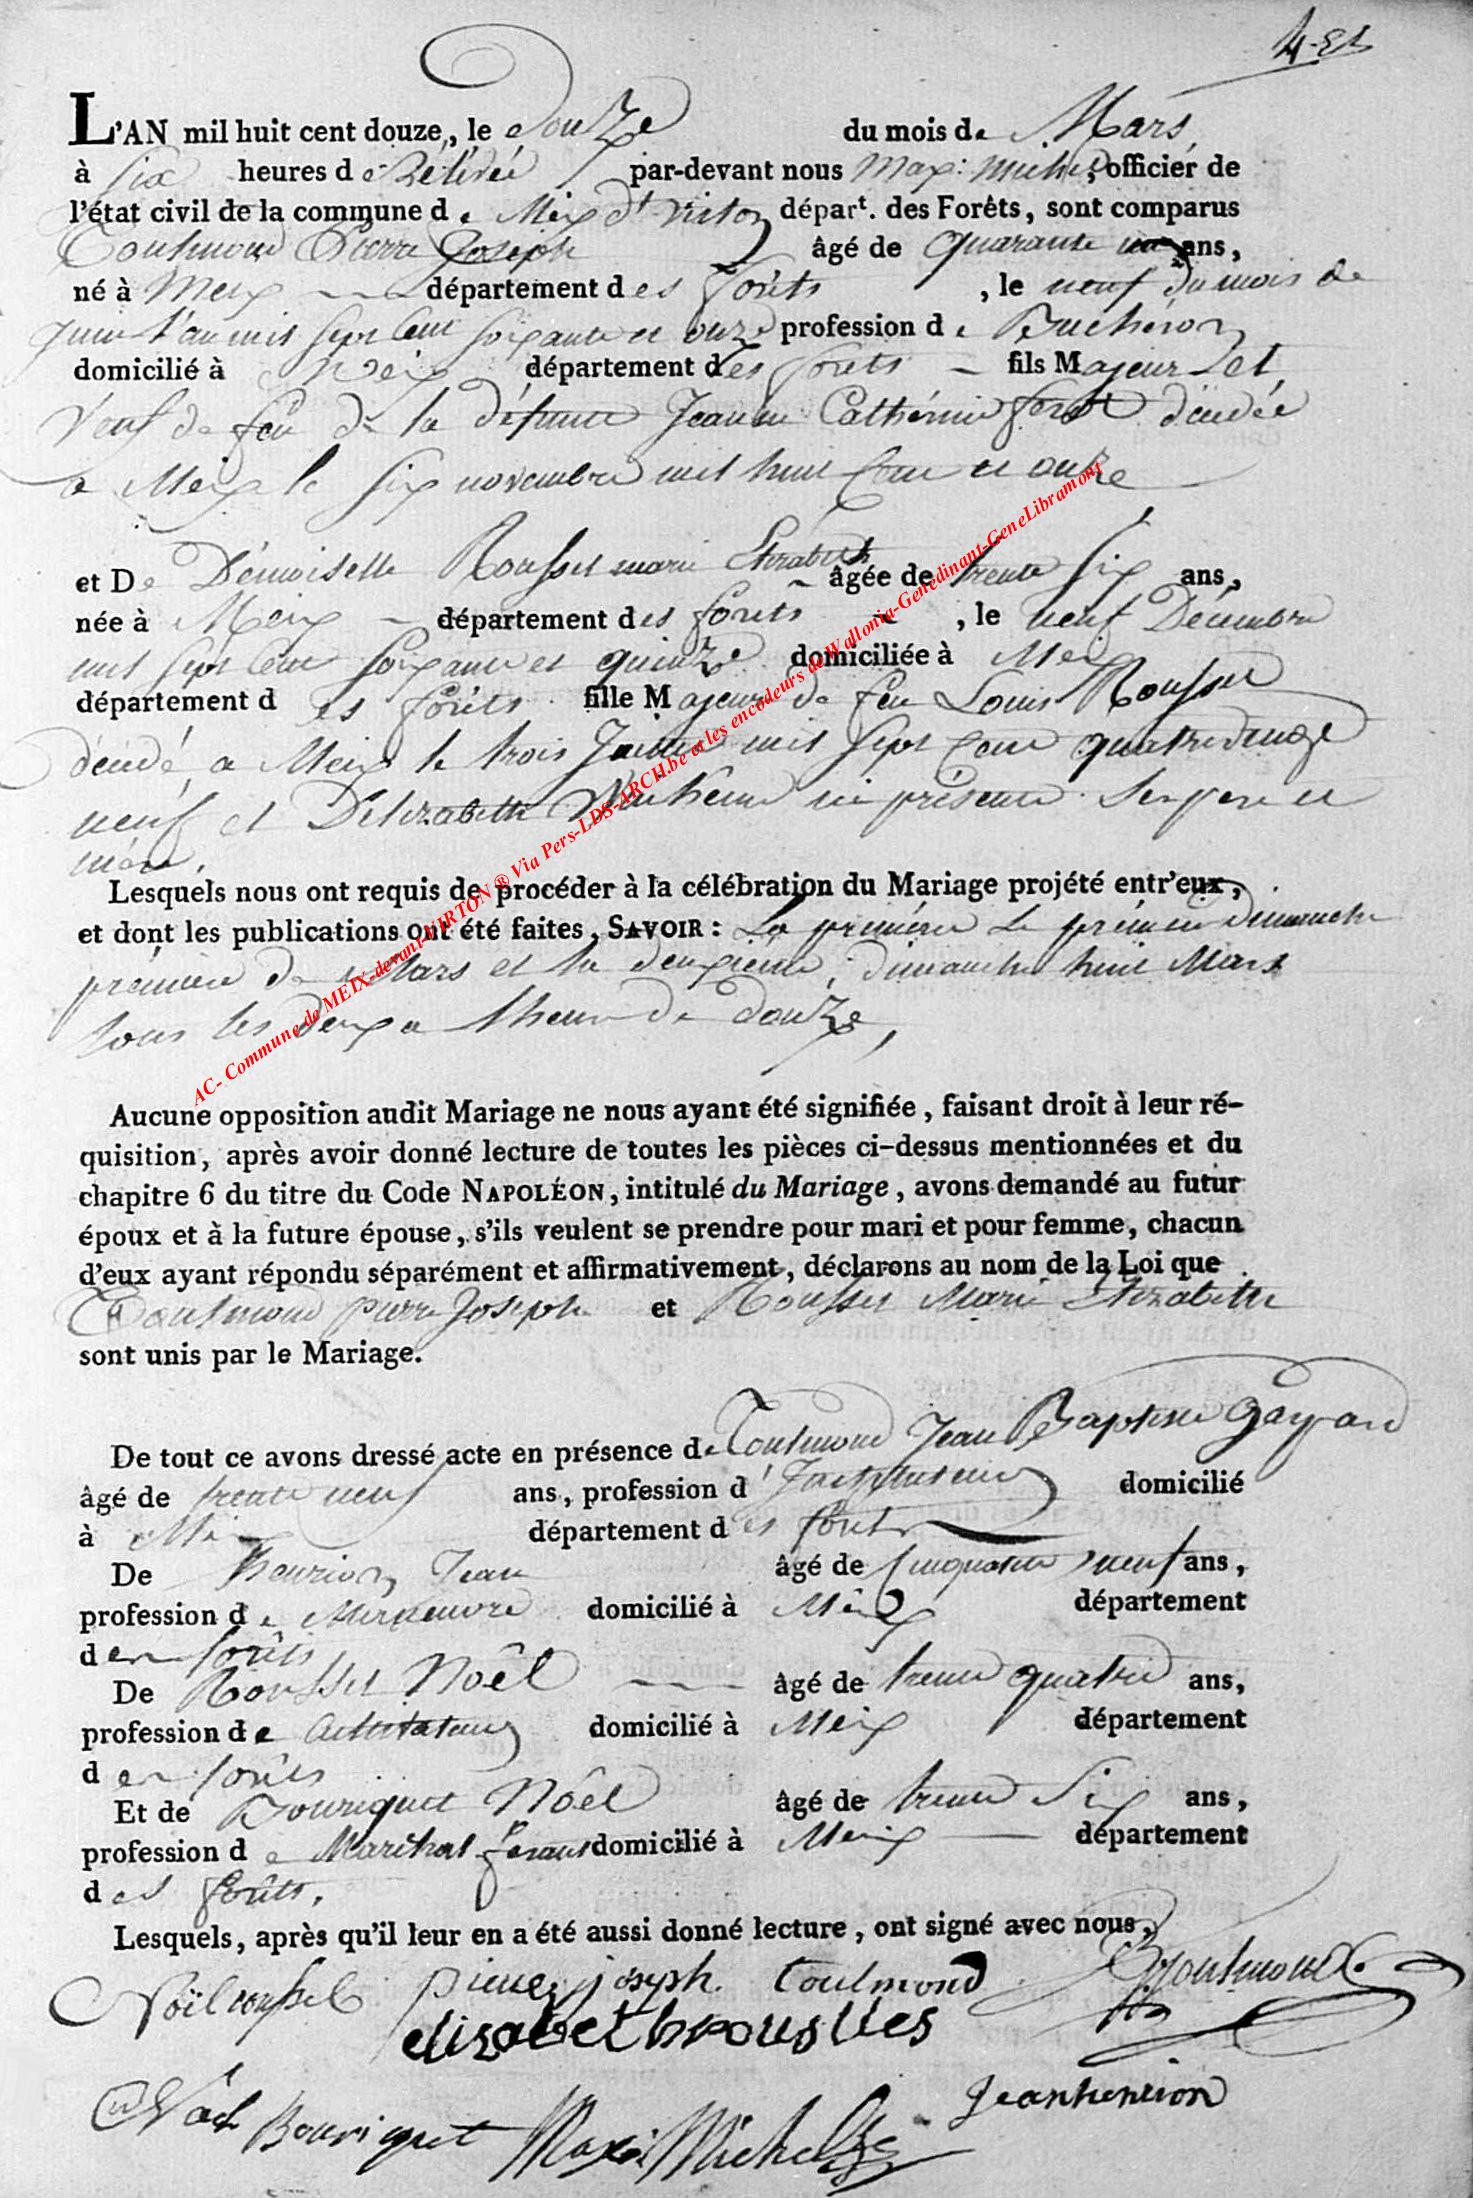 L'AN mil huit cent douze, le Douze du mois de Mars
à six heures de Relévée par-devant nous Max: Michel, officier de
l'état civil de la commune de Meix dt Virton départ. des Forêts, sont comparus
Toulmond Pierre Joseph âgé de quarante un ans,
né à Meix département des forêts, le neuf du mois de
juin l'an mil sept cent soixante et onze profession de Bucheron
domicilié à Meix département des forets fils Majeur et
Veuf de feu de la défunte Jeanne Catherine décédée
a Meix le six novembre mil huit cent et onze
et De Démoiselle Rousset marie Elizabeth âgée de trente six ans,
née à Meix département des forets, le neuf Décembre
mil sept cent soixante et quinze domiciliée à Meix
département des forêts fille Majeure de feu Louis Rousset
décédé a Meix le trois mil sept cent quatrevingt
neuf et D'Elizabeth ici présente. Ses pere et
mère.
Lesquels nous ont requis de procéder à la célébration du Mariage projété entr'eux,
et dont les publications ont été faites, SAVOIR : La première Le prémier Dimanche
prémier de Mars et la deuxieme dimanche huit Mars
tous les deux a l'heure de douze,
Aucune opposition audit Mariage ne nous ayant été signifiée, faisant droit à leur ré-
quisition, après avoir donné lecture de toutes les pièces ci-dessus mentionnées et du
chapitre 6 du titre du Code NAPOLÉON, intitulé du Mariage, avons demandé au futur
époux et à la future épouse, s'ils veulent se prendre pour mari et pour femme, chacun
d'eux ayant répondu séparément et affirmativement, déclarons au nom de la Loi que
Toulmond pierre Joseph et Rousset Marie Elizabeth
sont unis par le Mariage.
De tout ce avons dressé acte en présence de Toulmond Jean Baptiste Gaspard
âgé de trente neuf ans, profession d'Instituteur domicilié
à Meix département des forêts
De henrion Jean âgé de cinquante neuf ans,
profession de Manœuvre domicilié à Meix département
des forêts
De Rousset Noêl âgé de trente quatre ans,
profession de Cultivateur domicilié à Meix département
des forêts
Et de Bouriquet Noêl âgé de trente Six ans,
profession de Maréchal ferant domicilié à Meix département
des forêts.
Lesquels, après qu'il leur en a été aussi donné lecture, ont signé avec nous,
Noël rousset pierre joseph toulmond Toulmond
elisabeth rousset
Jean henrion
Noël Bouriquet Max: Michel
AC- Commune de MEIX-devant-VIRTON ® Via Pers-LDS-ARCH.be et les encodeurs de Wallonia-Genedinant-GeneLibramont